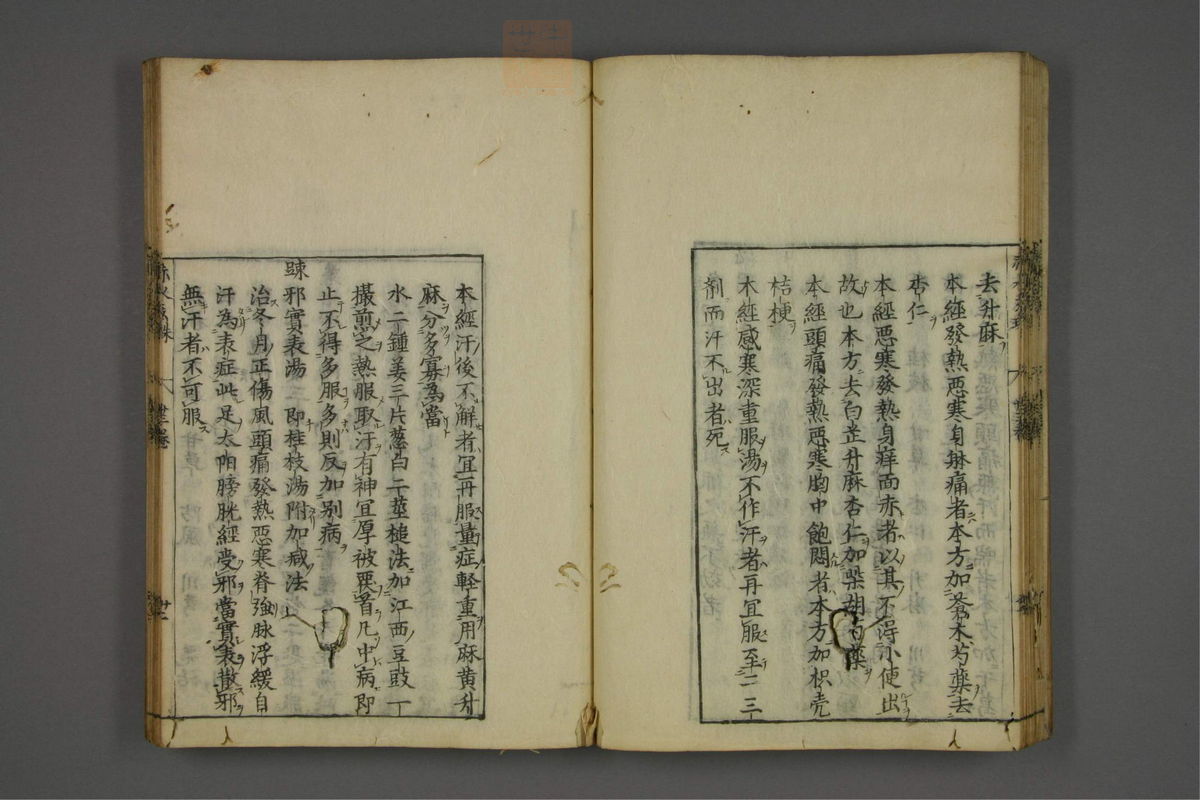 去升麻
本經發熱惡寒身痳痛者本方加蒼木芍藥去
杏仁
本經惡寒發熱身痒面赤者以其不淂小便出
故也本方去白芷升麻杏仁加柴胡芍藥
本經頭痛發熱惡寒胸中飽悶者本方加枳壳
桔梗
本經感寒深重服湯不作汗者再宜服至二三
劑而汗不出者死
本經汗後不解者宜再服量症軽重用麻黄升
麻分多寡為當
水二鍾姜三片葱白二莖槌法加江西豆豉一
撮煎之熱服取汗有神宜厚被褁首凡中病即
止不得多服多則反加别病
踈邪實表湯 即桂枝湯附加减法
治冬月正傷風頭痛發熱惡寒脊強脉浮緩自
汗為表症此足太陽膀胱經受邪當實表散邪
無汗者不可服